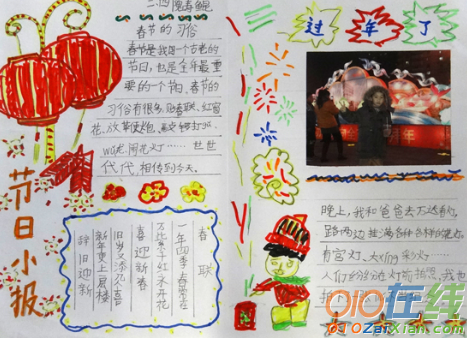 二四
春节的习俗
春节是我国一个古老的
节日,也是全年最重
要的一个节,春节的
习俗有很多,贴春联、
花、放鞭炮、
wǔ龙、闹花灯……世世
代代,相传到今天。
节日小报
春联
一年四季春常在
万紫千红永开花
喜迎新春
旧岁又添几个喜
新年更上一层楼
辞旧迎新
过年了
年
晚上,我和爸爸去
路两边挂满各种各样的花灯,
有宫灯、
人们纷纷在灯前拍照,我也
拍
010在线
010zaiXian.com